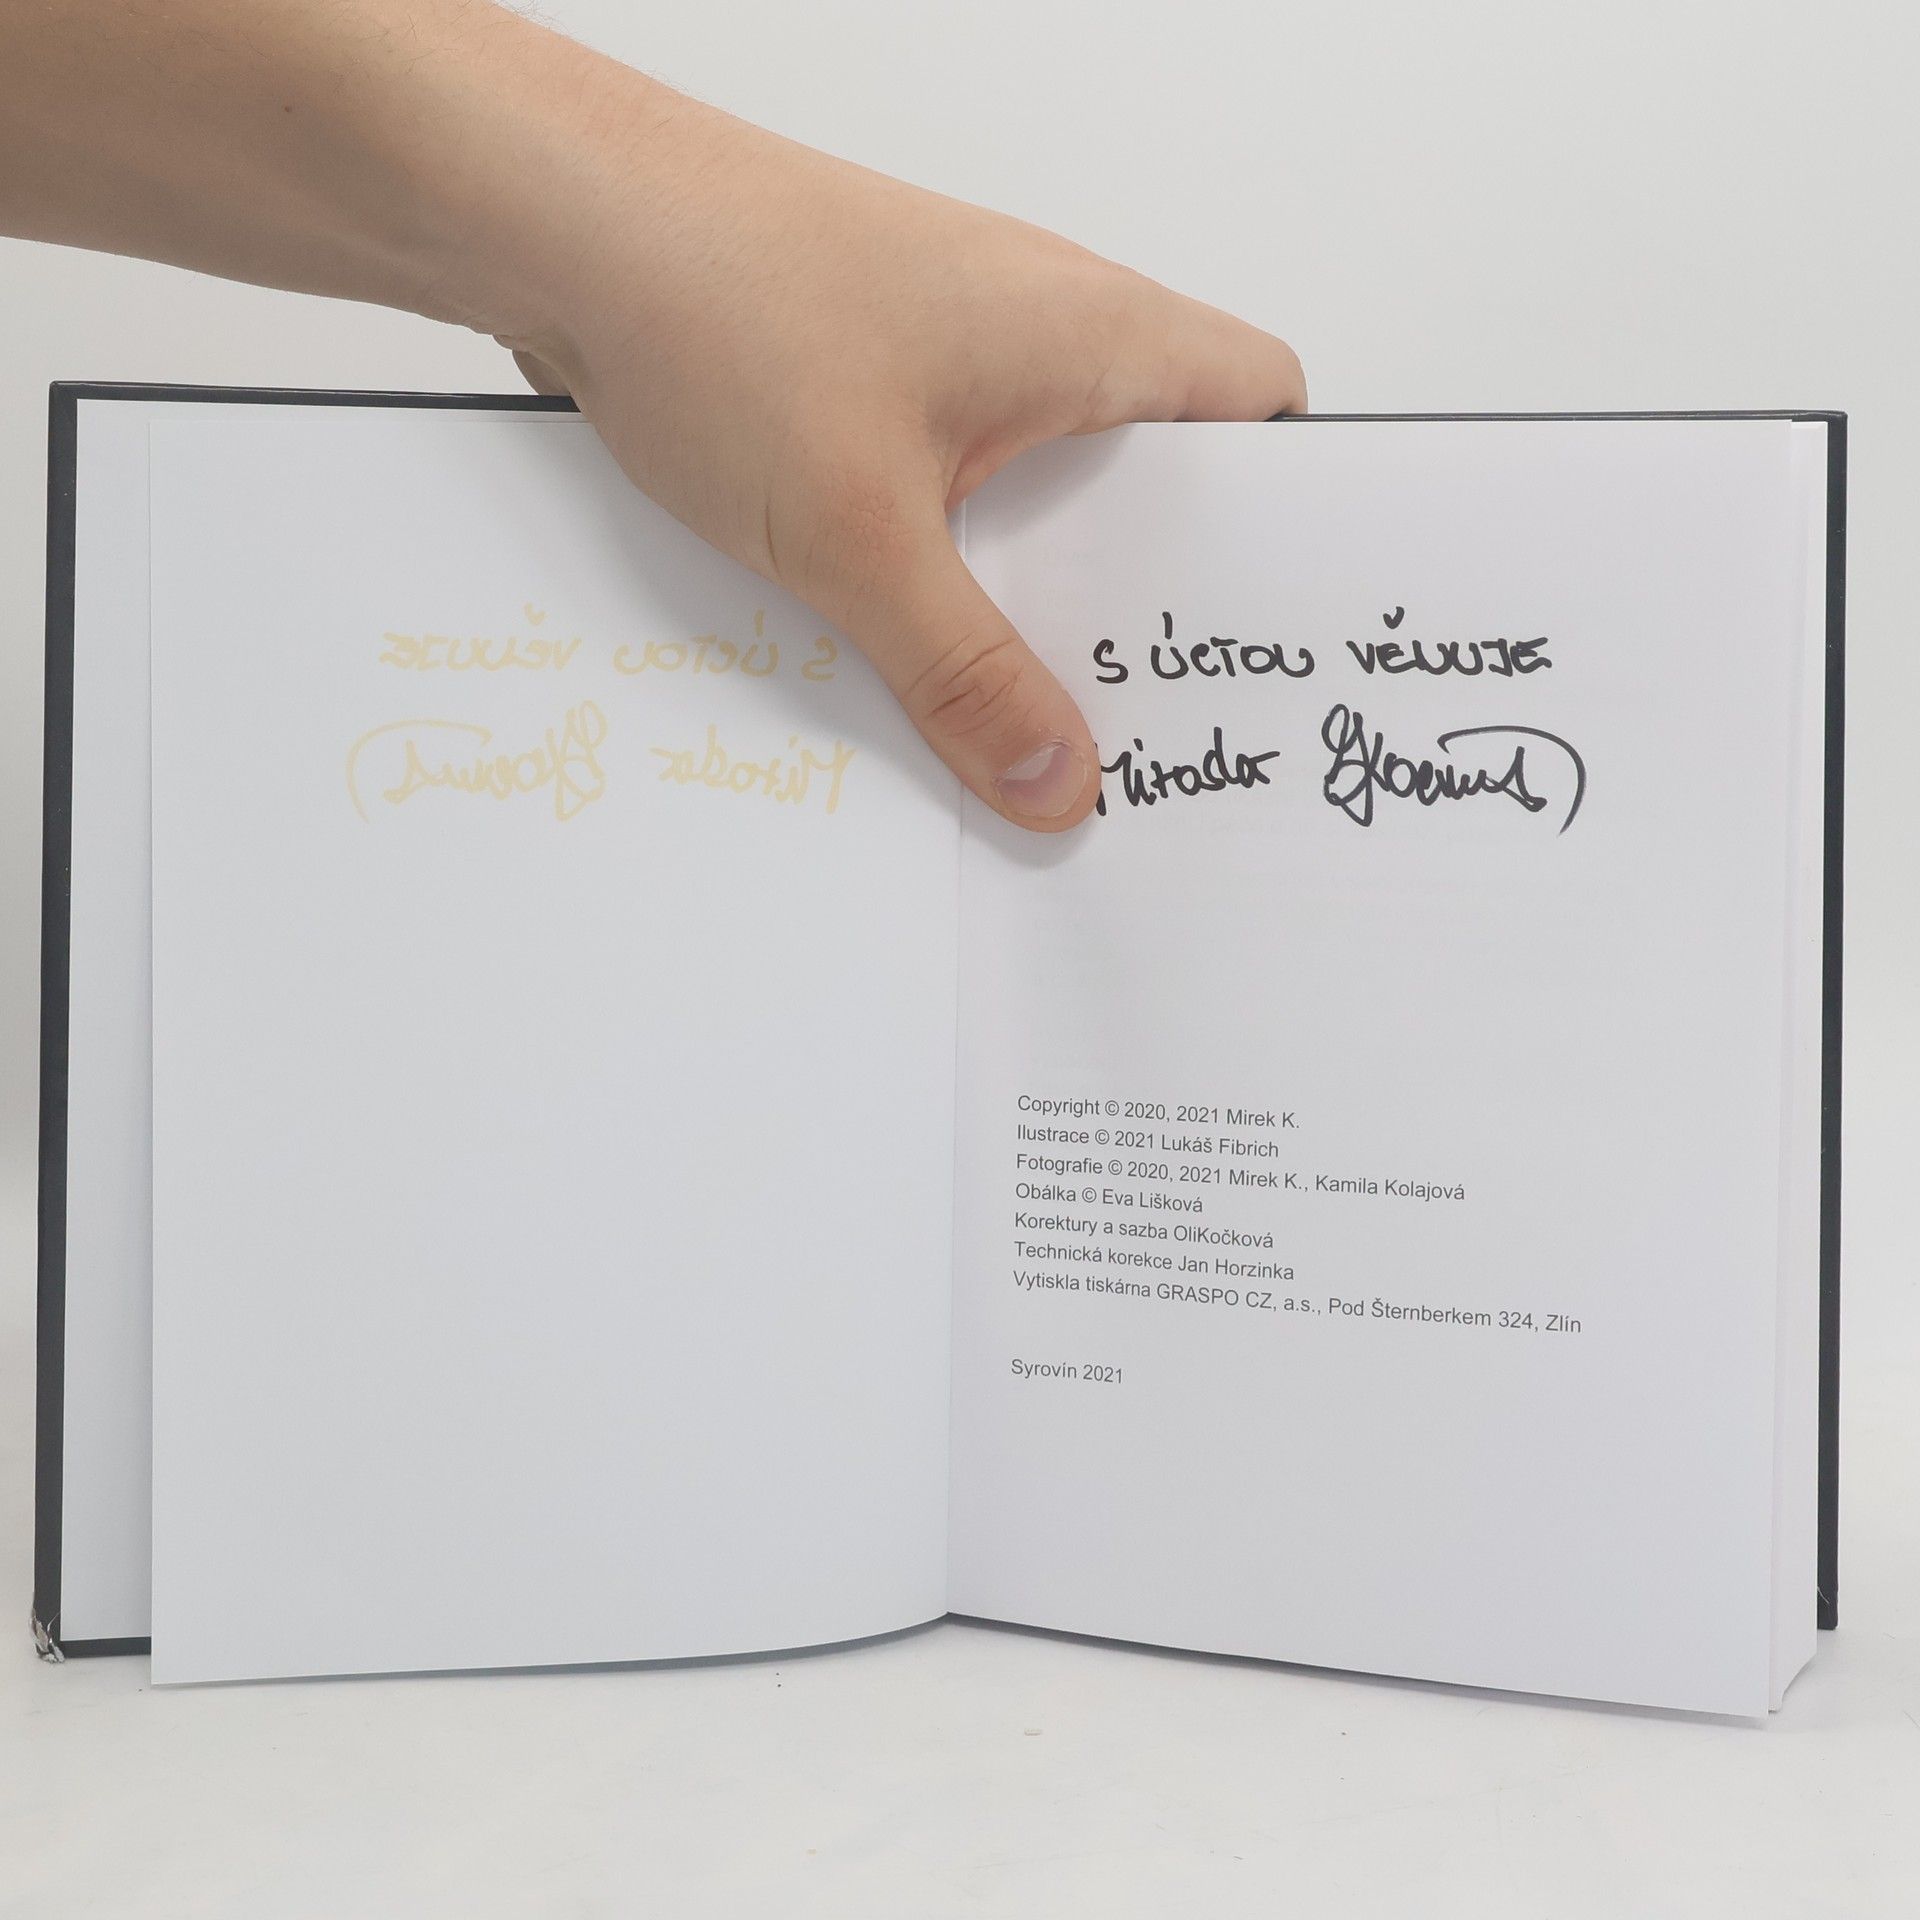 S ÚCTOU VĚNUJE
Miroslav
Copyright © 2020, 2021 Mirek K.
Ilustrace © 2021 Lukáš Fibrich
Fotografie © 2020, 2021 Mirek K., Kamila Kolajová
Obálka © Eva Lišková
Korektury a sazba OliKočková
Technická korekce Jan Horzinka
Vytiskla tiskárna GRASPO CZ, a.s., Pod Šternberkem 324, Zlín
Syrovín 2021